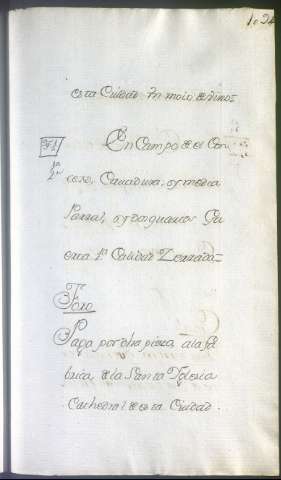 esta Ciudad Un moio de vino=
En Campo de el Con
cexo, Cauadura, y media
Parral, y dos quartos Hu
erta 1ª Calidad Zerrada=
Foro
Paga por dha pieza, a la fa
brica, de la Santa Yglesia
Cathedral de esta Ciudad.